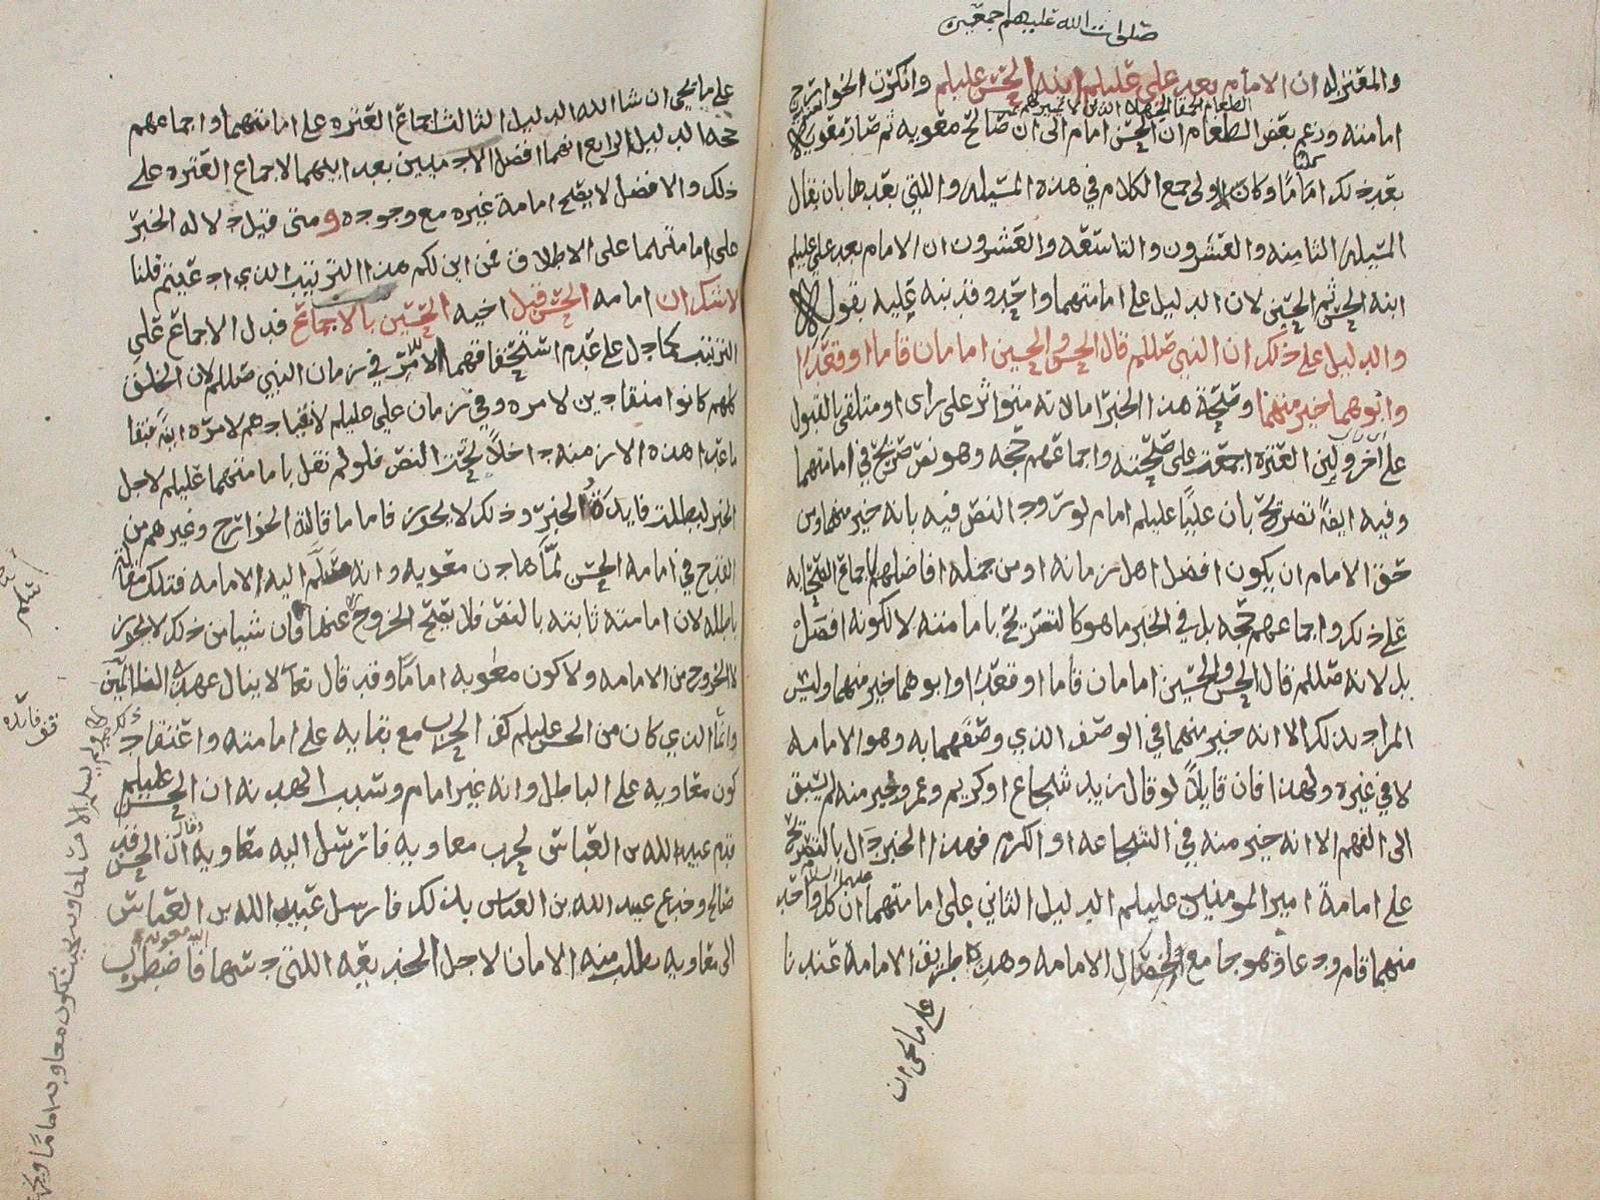 صلوات الله عليهم اجمعين
والمعتزله ان الامام بعد علي عليلم ابنه الحسن عليلم وانكرت الخوارج
امامته وزعم بعض الطغام ان الحسن امام الى ان صالح معويه ثم صار معويه
بعد ذلك اماما وكان الاولى جمع الكلام في هذه المسيله واللتي بعدها بان يقال
المسيله الثامنه والعشرون والتاسعه والعشرون ان الامام بعد علي عليلم
ابنه الحسن ثم الحسين لان الدليل على امامتهما واحد وقد نبه عليه بقوله
والدليل على ذلك ان النبي صللم قال الحسن والحسين امامان قاما او قعدا
وابوهما خير منهما وصحة هذا الخبر اما لانه متواتر على راى او متلقى بالقبول
على اخر ولان العتره اجمعت على صحته واجماعهم حجه وهو نص صريح في امامتهما
وفيه ايضا تصريح بان عليا عليلم امام لورود النص فيه بانه خير منهما ومن
حق الامام ان يكون افضل اهل زمانه او من جمله افاضلهم لاجماع الصحابه
على ذلك واجماعهم حجه بل في الخبر ما هو كالتصريح بامامته لا لكونه افضل
بل لانه صللم قال الحسن والحسين امامان قاما او قعدا وابوهما خير منهما وليس
المراد بذلك الا انه خير منهما في الوصف الذي وصفهما به وهو الامامه
لا في غيره ولهذا فان قايلا لو قال زيد شجاع او كريم وعمرو خير منه لم يسبق
الى الفهم الا انه خير منه في الشجاعه او الكرم فهذا الخبر دال بالتصريح
على امامة امير المومنين عليلم الدليل الثاني على امامتهما ان كل واحد
منهما قام ودعا وهو جامع لخصال الامامه وهذه طريق الامامة عندنا
على ما يجى ان
على ما يجى ان شا الله الدليل الثالث اجماع العتره على امامتهما واجماعهم
حجه الدليل الرابع انهما افضل الادميين بعد ابيهما لاجماع العتره على
ذلك والافضل لا يصح امامة غيره مع وجوده ومتى قيل دلاله الخبر
على امامتهما على الاطلاق فمن اين لكم هذا الترتيب الذي ادعيتم قلنا
لا شك ان امامه الحسن قبل اخيه الحسين بالاجماع فدل الاجماع على
الترتيب كما دل على عدم استحقاقهما للامر في زمان النبي صللم لان الخلق
كلهم كانوا منقادين لامره وفي زمان علي عليلم لانقيادهم لامره ايضا فبقا
ما عدا هذه الازمنه داخلا تحت النص فلو لم نقل بامامتهما عليلم لاجل
الخبر لبطلت فايدة الخبر وذلك لا يجوز فاما ما قالته الخوارج وغيرهم من
القدح في امامه الحسن لما هادن معويه وانه سلم اليه الامامه فتلك مقالة
باطله لان امامته ثابته بالنص فلا يصح الخروج عنها فان شيا من ذلك لا يجوز
الخروج من الامامه ولا كون معويه اماما وقد قال تعا لا ينال عهدي الظالمين
وانما الذي كان من الحسن عليلم كف الحرب مع بقايه على امامته واعتقاد
كون معاويه على الباطل وانه غير امام وسبب الهدنه ان الحسن عليلم
قدم عبيد الله بن العباس لحرب معاويه فارسل اليه معاويه ان الحسن قد
صالح وخدع عبيد الله بن العباس بذلك فارسل عبيد الله بن العباس
الى معاويه يطلب منه الامان لاجل الخديعه اللتي دسها فاضطرب